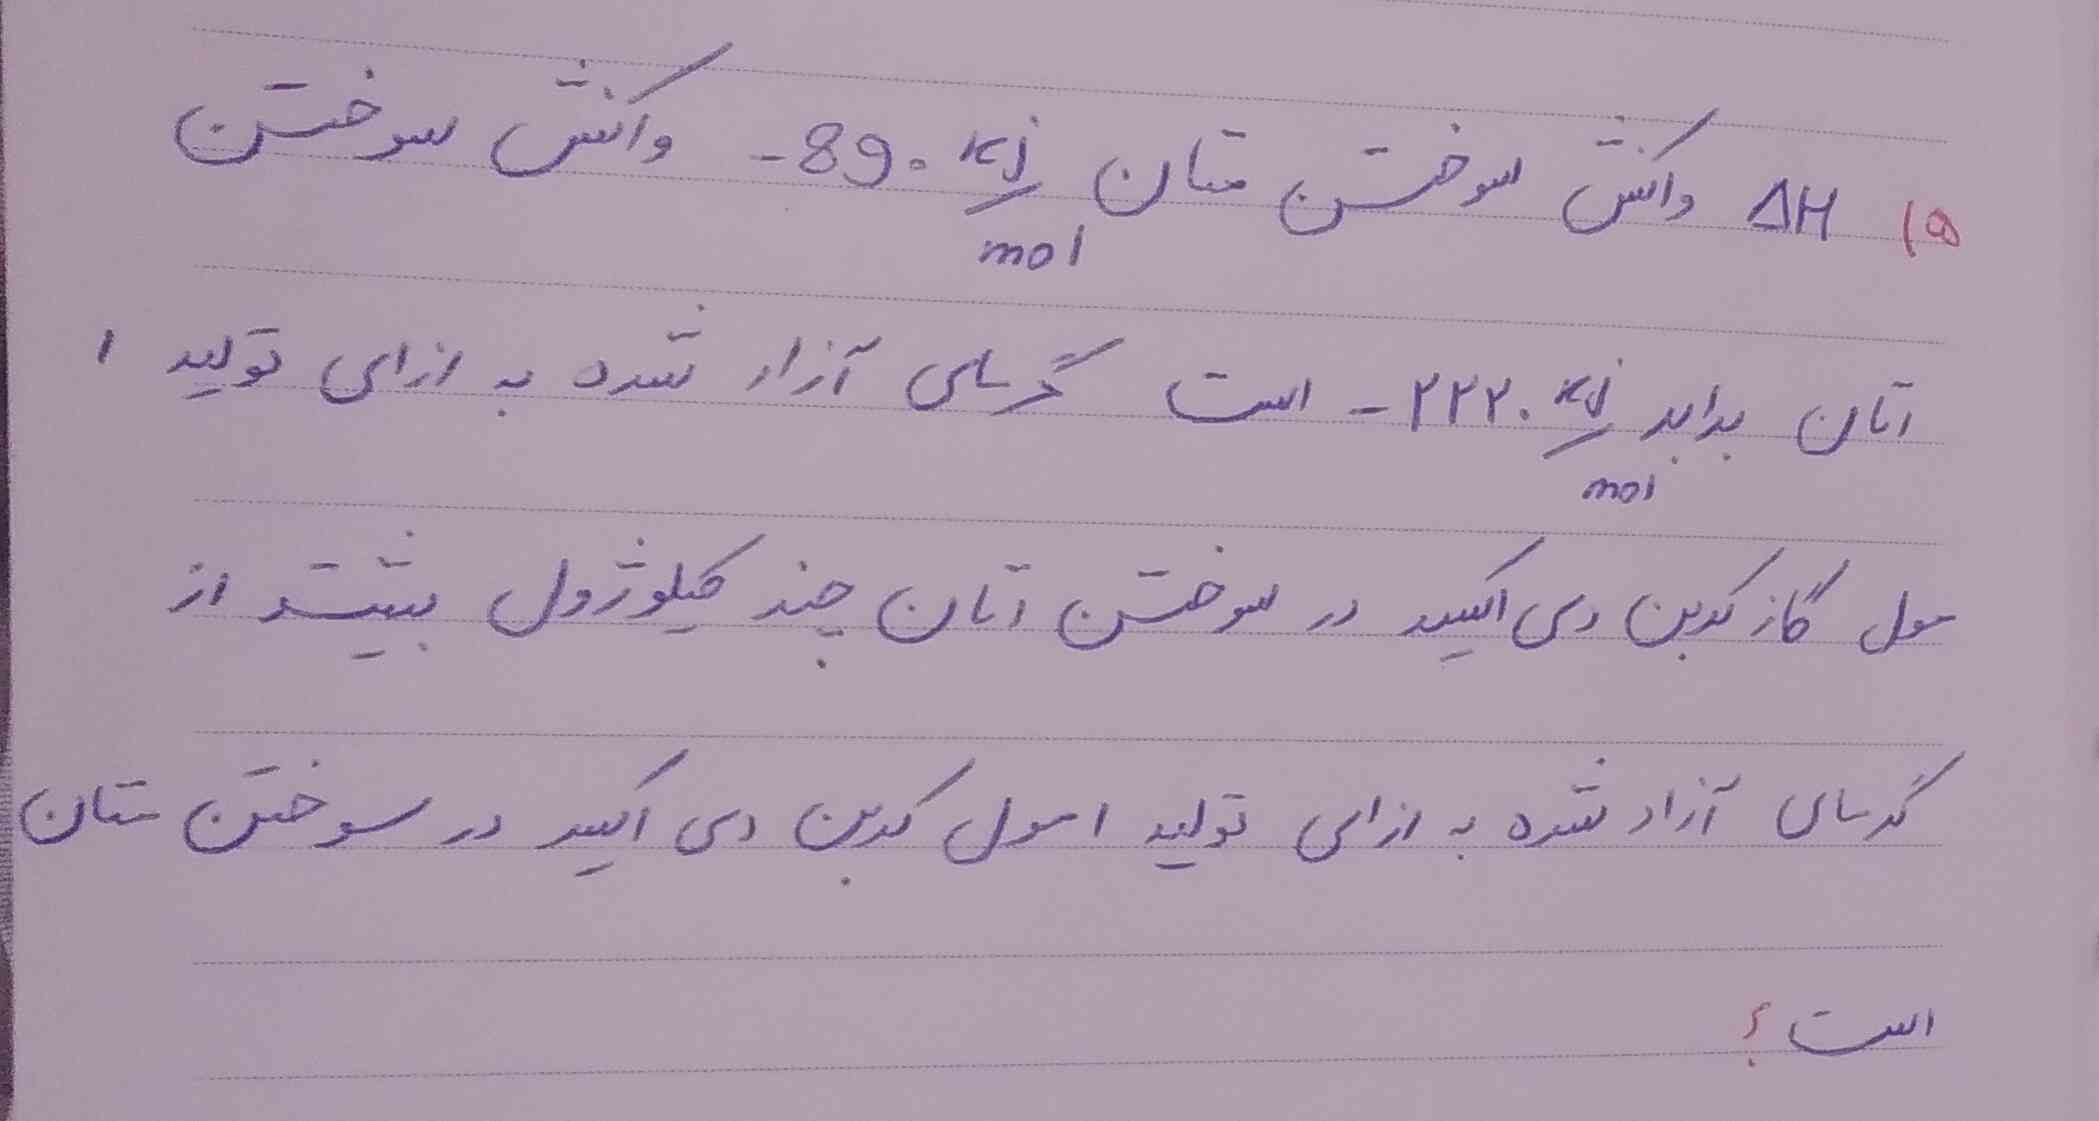 ۱۵ ΔH واکنش سوختن متان -890 kJ/mol واکنش سوختن
اتان برابر -۲۲۲۰ kJ/mol است گرمای آزاد شده به ازای تولید ۱
مول گاز کربن دی اکسید در سوختن اتان چند کیلوژول بیشتر از
گرمای آزاد شده به ازای تولید ۱ مول کربن دی اکسید در سوختن متان
است؟